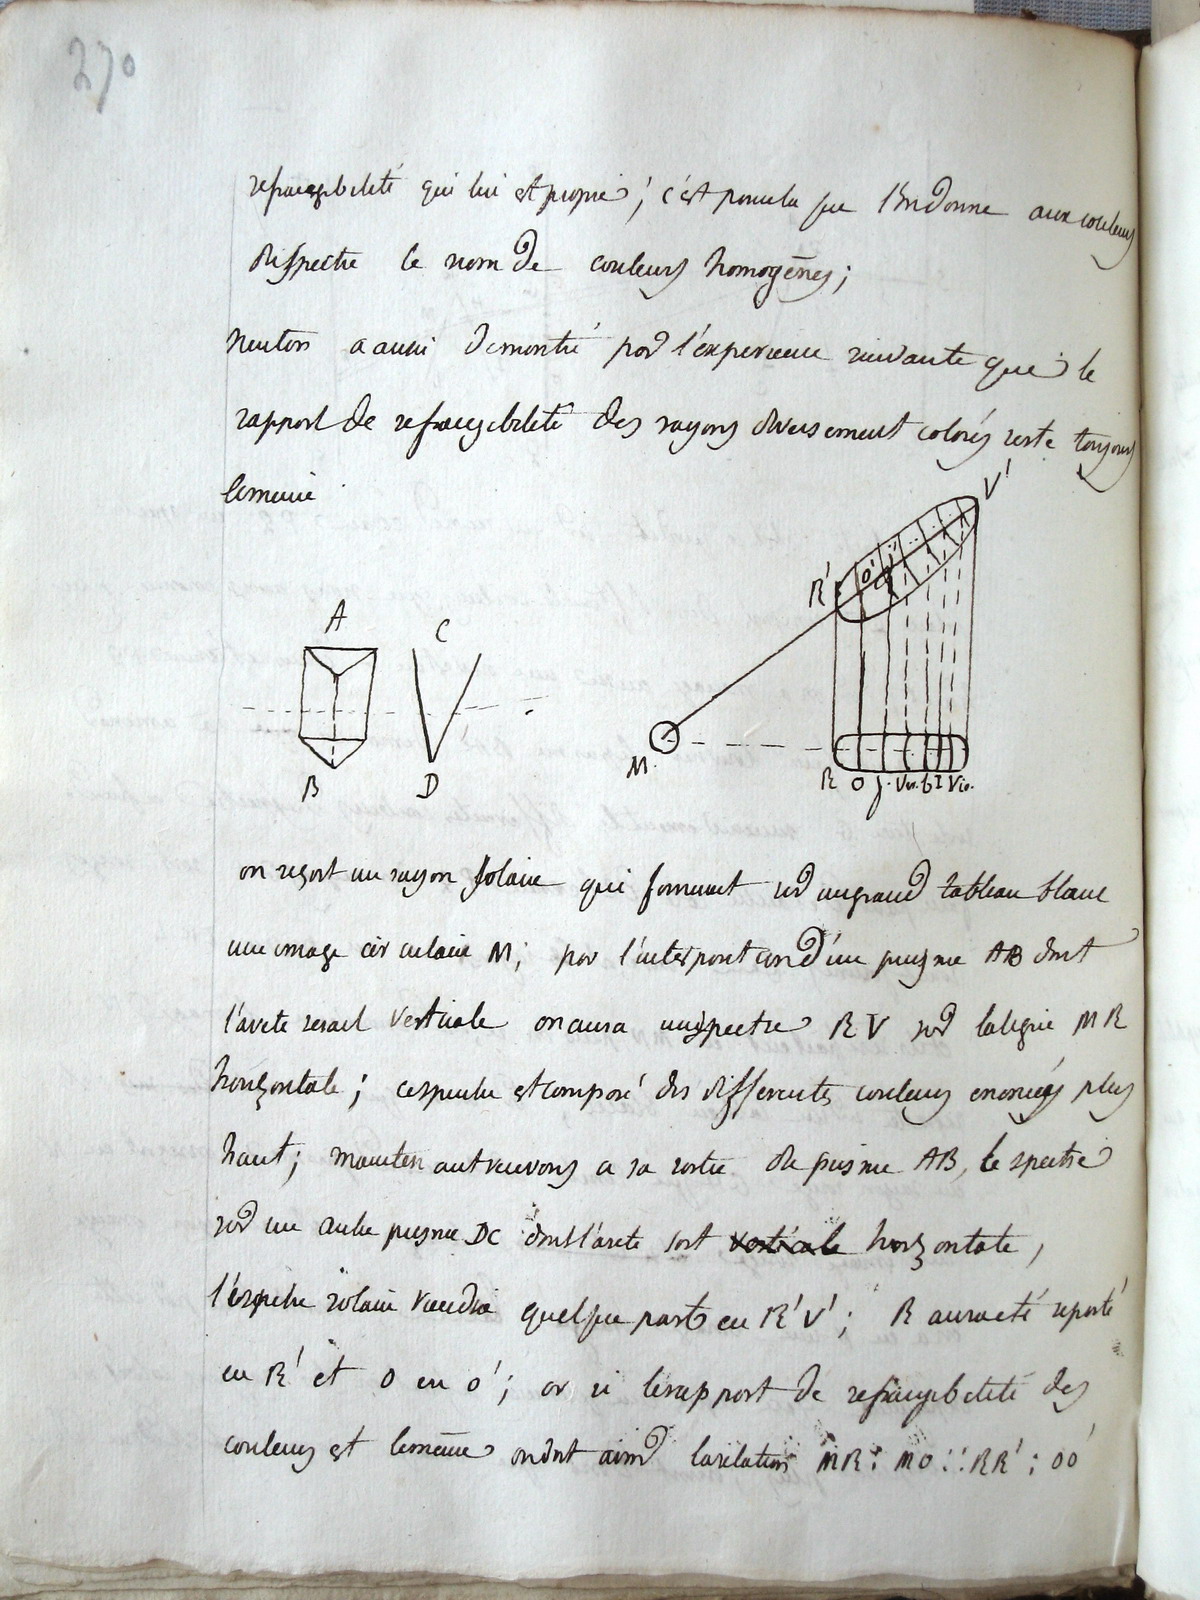 270
refrangibilité qui lui est propre; c'est pour cela que l'on donne aux couleurs
du spectre le nom de couleurs homogênes;
Neuton a aussi demontré par l'experience suivante que le
rapport de refrangibilité des rayons diversement colorés reste toujours
le meme
V'
R' O' j'
A C
M
B D
R O j. Ver. b I Vio.
on reçoit un rayon solaire qui formerait sur un grand tableau blanc
une image circulaire M; par l'interposition d'un prisme AB dont
l'arete serait verticale on aura un spectre RV sur la ligne MR
horizontale; ce spectre est composé des differentes couleurs enoncées plus
haut; maintenant recevons a sa sortie du prisme AB, le spectre
sur un autre prisme DC dont l'arete soit verticale horizontale,
le spectre solaire viendra quelque part en R'V'; R aura eté reporté
en R' et O en O'; or si le rapport de refrangibilité des
couleurs est le même on doit avoir la relation MR : MO :: RR' : OO'